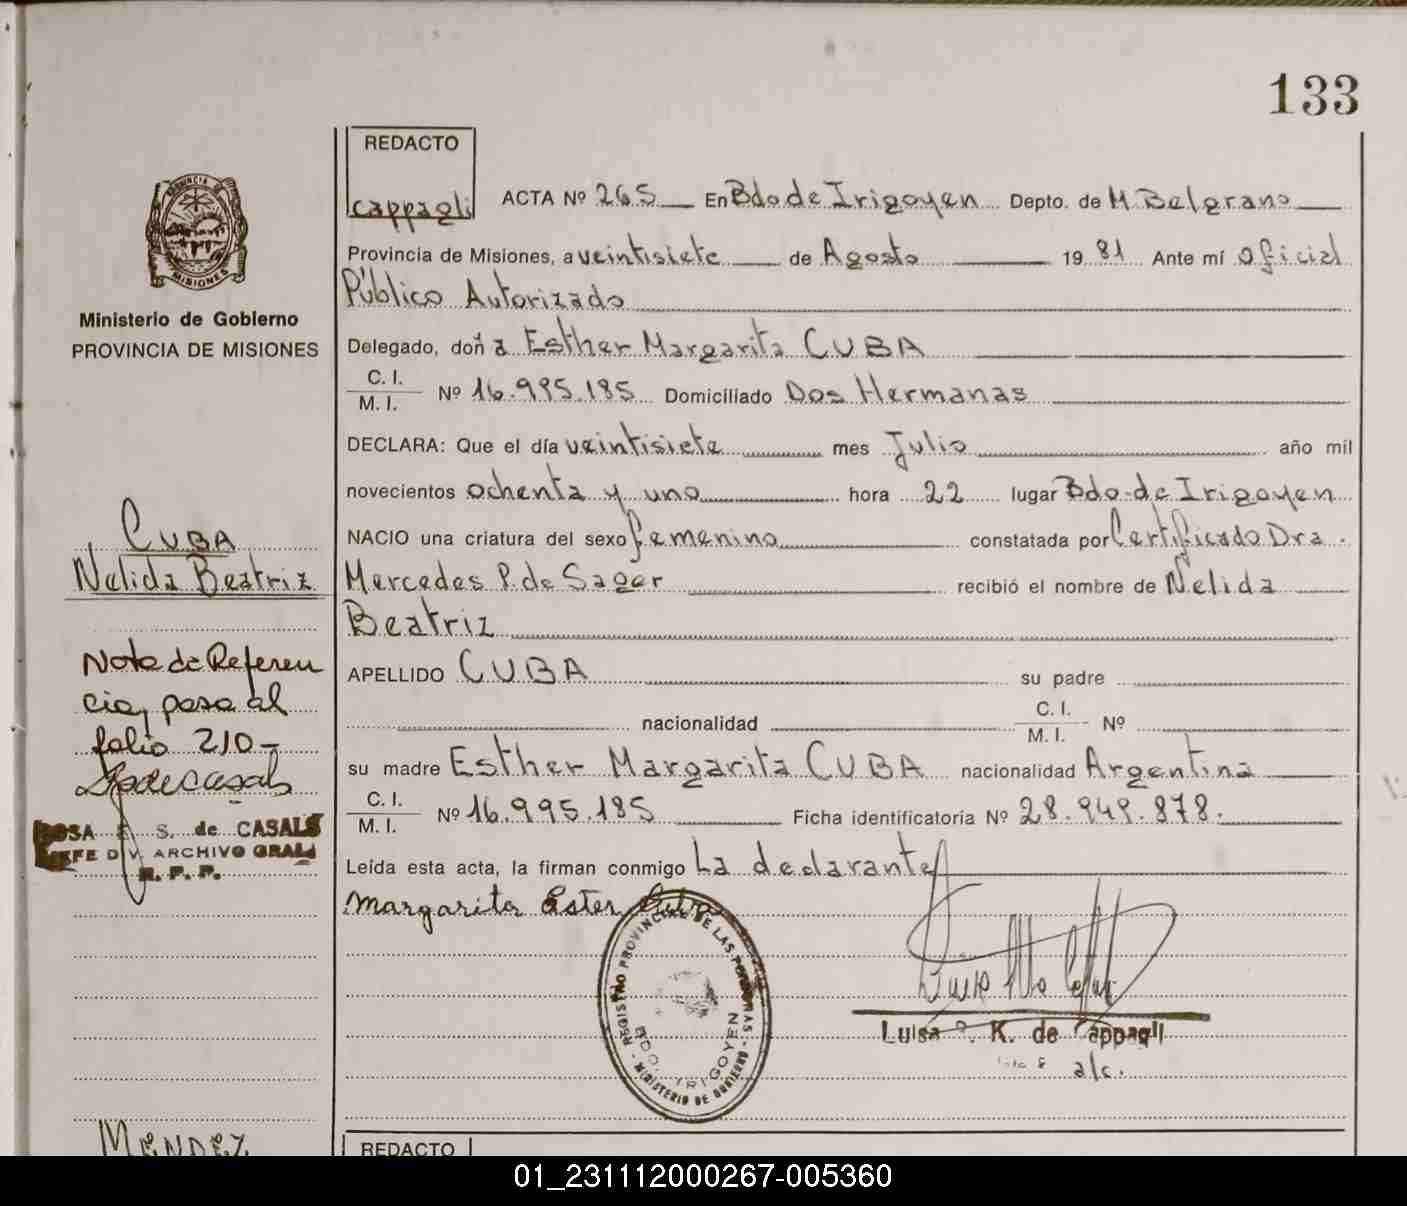 133
REDACTO
cappagli
ACTA Nº 265 En Bdo de Irigoyen Depto. de M. Belgrano
Provincia de Misiones, a veintisiete de Agosto 19 81 Ante mí Oficial
Público Autorizado
Delegado, doña Esther Margarita CUBA
C. I.
M. I. Nº 16.995.185 Domiciliado Dos Hermanas
DECLARA: Que el día veintisiete mes Julio año mil
novecientos ochenta y uno hora 22 lugar Bdo. de Irigoyen
NACIO una criatura del sexo femenino constatada por Certificado Dra.
Mercedes P. de Sager recibió el nombre de Nelida
Beatriz
APELLIDO CUBA su padre
nacionalidad C. I.
M. I. Nº
su madre Esther Margarita CUBA nacionalidad Argentina
C. I.
M. I. Nº 16.995.185 Ficha identificatoria Nº 28.949.878.
Leída esta acta, la firman conmigo La declarante
Margarita Ester Cuba
REGISTRO PROVINCIAL DE LAS PERSONAS - MINISTERIO DE GOBIERNO -
BDO. IRIGOYEN
Luisa K. de Cappagli
a/c.
REDACTO
PROVINCIA DE
MISIONES
Ministerio de Gobierno
PROVINCIA DE MISIONES
CUBA
Nelida Beatriz
Nota de Referen
cia, pasa al
folio 210-
ROSA E. S. de CASALS
JEFE DIV. ARCHIVO GRAL
R. P. P.
MENDEZ
01_231112000267-005360